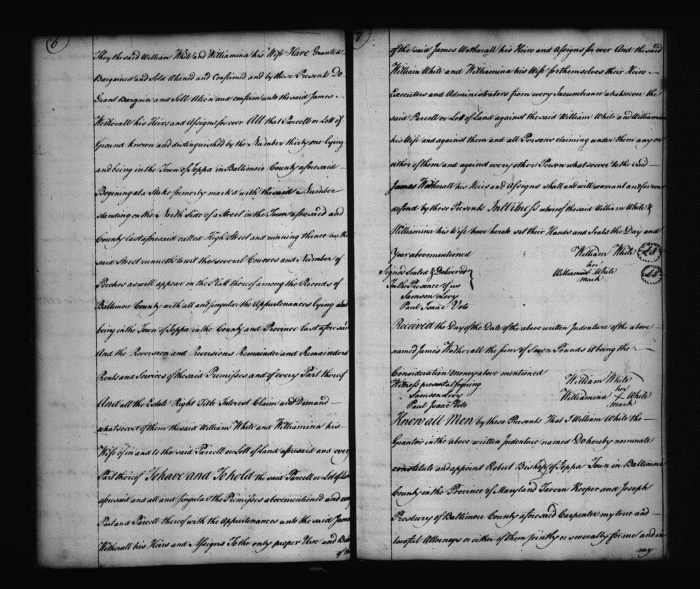 6
They the said William White and Williamina his Wife Have Granted
Bargained and Sold Aliened and Confirmed and by these Presents Do
Grant Bargain and Sell Alien and confirm unto the said James
Wetherall his Heirs and Assigns for ever All that Parcell or Lott of
Ground known and distinguished by the Number thirty one lying
and being in the Town of Joppa in Baltimore County aforesaid
Begining at a Stake formerly markd with the said Number
standing on the North Side of a Street in the Town aforesaid and
County last aforesaid called High Street and running thence on the
said Street runneth to not several Courses and Number of
Perches as will appear on the Platt thereof among the Records of
Baltimore County with all and singular the Appurtenances lying and
being in the Town of Joppa in the County and Province last aforesaid
And the Reversion and Reversions Remainder and Remainders
Rents and Services of the said Premisses and of every Part thereof
And all the Estate Right Title Interest Claim and Demand
whatsoever of them the said William White and Williamina his
Wife of in and to the said Parcell or Lott of Land aforesaid and every
Part thereof To have and To hold the said Parcell or Lott of Land
aforesaid and all and singular the Premisses abovementioned and every
Part and Parcell thereof with the Appurtenances unto the said James
Wetherall his Heirs and Assigns To the only proper Use and
of the
7
of the said James Wetherall his Heirs and Assigns for ever And the said
William White and Williamina his Wife for themselves their Heirs
Executors and Administrators from every Incumbrance whatsoever the
said Parcell or Lott of Land against the said William White and Williamina
his Wife and against them and all Persons claiming under them any or
either of them and against every other Person whatsoever to the said
James Wetherall his Heirs and Assigns shall and will warrant and for ever
defend by these Presents In Witness whereof the said William White &
Williamina his Wife have hereto set their Hands and Seals the Day and
Year abovementioned
William White LS
her
Williamina White LS
mark
Signed Sealed & Delivered
In the Presence of us
Samson Levy
Paul Isaac Voto
Received the Day of the Date of the above written Indenture of the above
named James Wetherall the sum of Seven Pounds it being the
Consideration money above mentioned
Witness present at signing
Samson Levy
Paul Isaac Voto
William White
her
Williamina + White
mark
Know all Men by these Presents That I William White the
Grantor in the above written Indenture named Do hereby nominate
constitute and appoint Robert Bishop of Joppa Town in Baltimore
County in the Province of Maryland Tavern Keeper and Joseph
Presbury of Baltimore County aforesaid Carpenter my true and
lawful Attorneys or either of them jointly or severally for me and in
my